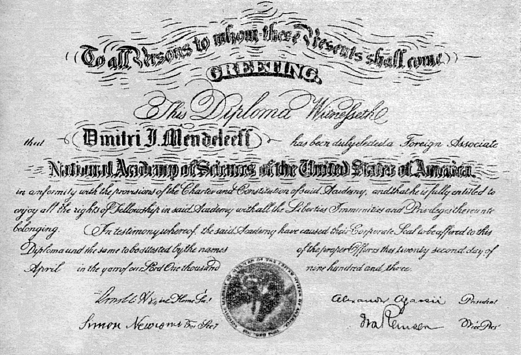 To all Persons to whom these Presents shall come
GREETING.
This Diploma Witnesseth
that Dmitri J. Mendeleeff has been duly elected a Foreign Associate
National Academy of Sciences of the United States of America
in conformity with the provisions of the Charter and Constitution of said Academy, and that he is fully entitled to
enjoy all the rights of Fellowship in said Academy with all the Liberties Immunities and Privileges thereunto
belonging. In testimony whereof, the said Academy have caused their Corporate Seal to be affixed to this
Diploma and the same to be attested by the names of the proper Officers this twenty second day of
April in the year of our Lord One thousand nine hundred and three.
Home Sec. Alexander Agassiz President
Simon Newcomb For. Sec. Ira Remsen Vice Pres.